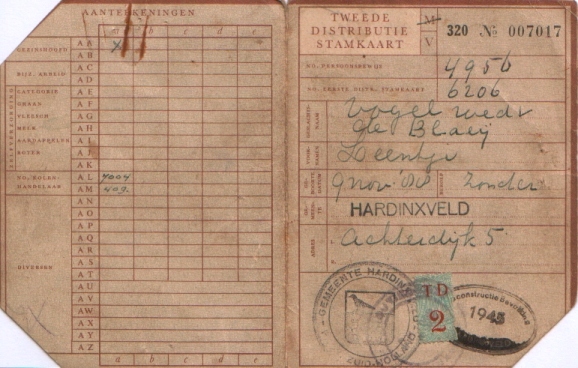 AANTEKENINGEN
a b c d e
GEZINSHOOFD
AA X
AB
AC
BIJZ. ARBEID
AD
ZELFVERZORGING
CATEGORIE AE
GRAAN AF
VLEESCH AG
MELK AH
AARDAPPELEN AI
BOTER AJ
AK
NO. KOLEN- AL 4004
HANDELAAR AM 409.
AN
AO
AP
AQ
AR
DIVERSEN AS
AT
AU
AV
AW
AX
AY
AZ
a b c d e
TWEEDE
DISTRIBUTIE
STAMKAART
M
V
320 No 007017
NO. PERSOONSBEWIJS 4956
NO. EERSTE DISTR. STAMKAART 6206
Vogel wedr
de Blaeij
Leentje
9 nov '88 Zonder
HARDINXVELD
ADRES Achterdijk 5
GEMEENTE HARDINXVELD
TD
2
1945